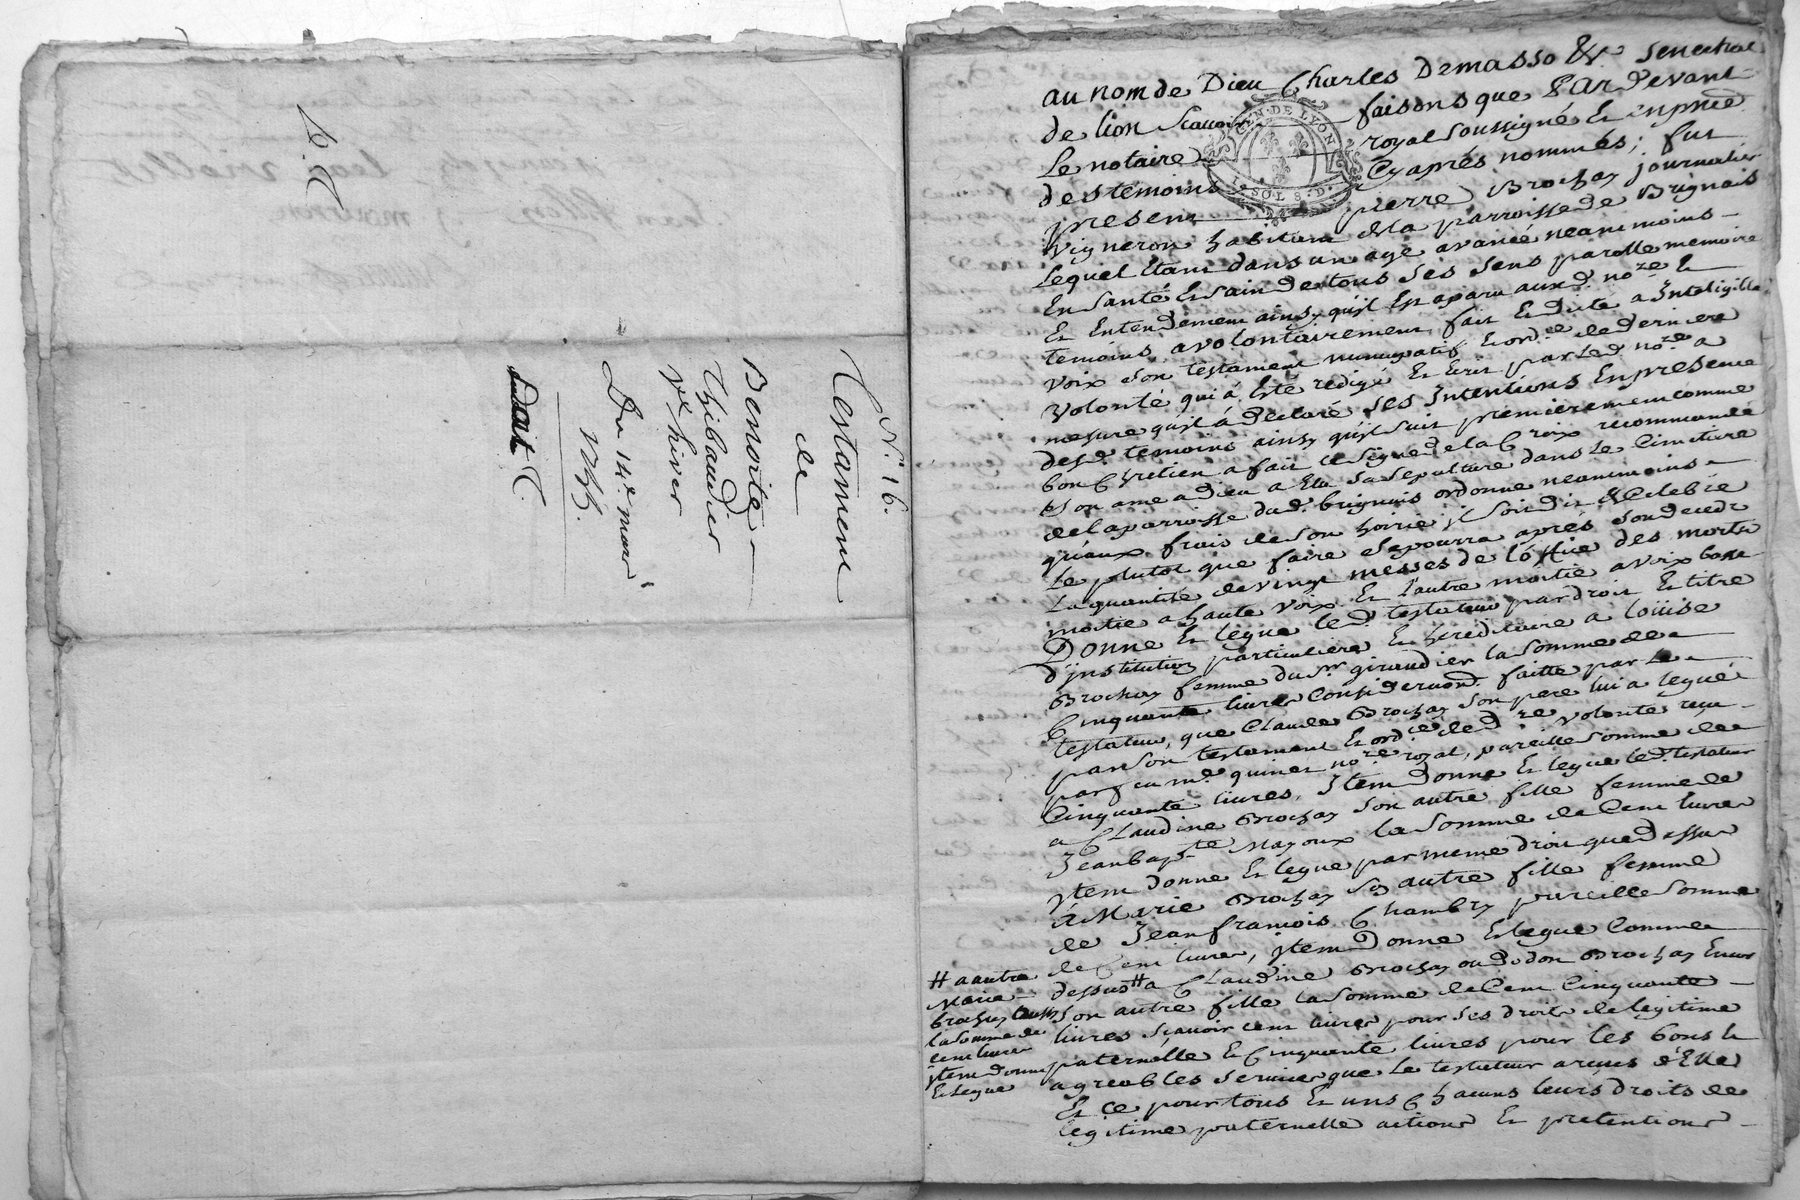 N.° 16.
Testament
de
Benoite
Thibaudier
v.e hiver
Du 14.e mars
1755.
au nom de Dieu Charles Demasso &.c senechal
de lion Scavoir faisons que Pardevant
Le notaire royal soussigné Et en presence
des temoins Cy après nommés, fut
present pierre Brochay journalier
vigneron habitant de la parroisse de Brignais
Lequel Etant dans un age avancé neantmoins
En santé Et sain de tous ses sens parolle memoire
Et Entendement ainsy qu'il Est aparu aux d. no.re &
temoins a volontairement fait Et dicté a Inteligible
voix son testament nuncupatif Et ord.ce de derniere
volonté qui a Eté redigé Et Ecrit par led. no.re a
mesure qu'il a declaré ses Intentions En presence
desd. temoins ainsy qu'il suit premierement comme
bon Chretien a fait le signe de la Croix recommandé
son ame a Dieu a Elu sa sepulture dans le Cimetiere
de la parroisse dud. brignais ordonne neantmoins
qu'aux frais de son hoirie il soit dit & Celebré
Le plutot que faire se pourra après son decedz
La quantité de vingt messes de l'office des morts
moitié a haute voix Et l'autre moitié a voix basse
Donne Et legue led. testateur par droit Et titre
d'jnstitution particuliere Et hereditaire a Loüise
Brochay femme du S.r giraudier la somme de
Cinquante livres Consideration faitte par le
testateur, que Claude Brochay son pere lui a legué
par son testament Et ord.ce de d.re volonté reçu
par feu m.e quinet no.re royal, pareille somme de
Cinquante livres, Jtem Donne Et legue led. testateur
a Claudine Brochay son autre fille femme de
Jean bap.te Mayoux la somme de Cent livres
jtem donne Et legue par meme droit que dessus
a Marie Brochay sa autre fille femme
de Jean francois Chambry pareille somme
de Cent livres, jtem Donne Et legue Comme
dessus # a Claudine Brochay ou dodon Brochay
son autre fille la somme de Cent Cinquante
livres sçavoir cent livres pour ses droits de legitime
paternelle & Cinquante livres pour les bons &
agreables services que le testateur a reçus d'Elle
Et ce pour tous Et uns Chacuns leurs droits de
legitime paternelle actions Et pretentions
# a autre
Marie
brochay aussy
la somme de
cent livres
jtem donne
Et legue